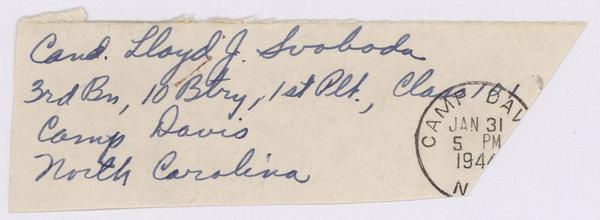 Cand. Lloyd J. Svoboda
3rd Bn, 10 Btry, 1st Plt., Class
Camp Davis
North Carolina
CAMP DAV
JAN 31
5 PM
194
N